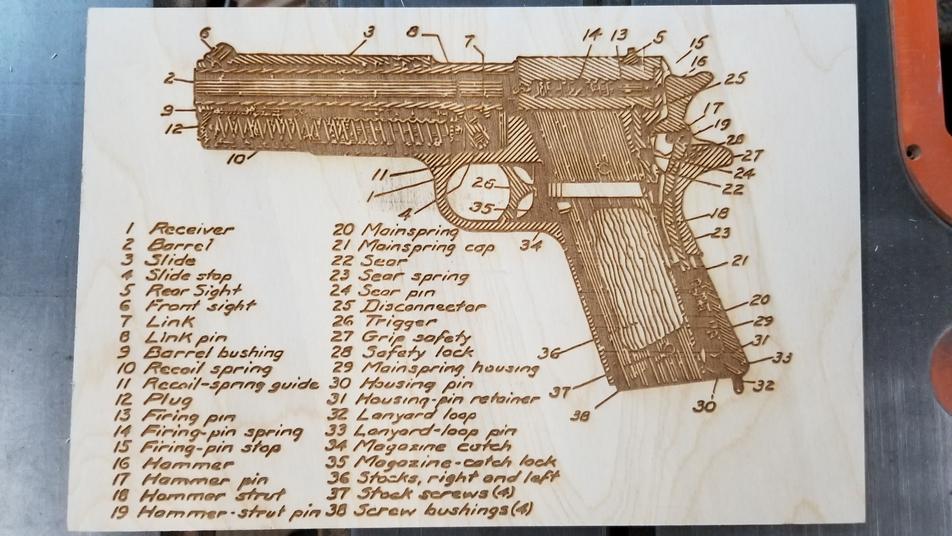 6 3 8 7 14 13 5 15
16
2 25
9 17
12 19
10 28
11 27
1 26 24
22
4 35 18
34 23
21
20
29
31
36 33
37 32
38 30
1 Receiver
2 Barrel
3 Slide
4 Slide stop
5 Rear Sight
6 Front sight
7 Link
8 Link pin
9 Barrel bushing
10 Recoil spring
11 Recoil-sprng guide
12 Plug
13 Firing pin
14 Firing-pin spring
15 Firing-pin stop
16 Hammer
17 Hammer pin
18 Hammer strut
19 Hammer-strut pin
20 Mainspring
21 Mainspring cap
22 Sear
23 Sear spring
24 Sear pin
25 Disconnector
26 Trigger
27 Grip safety
28 Safety lock
29 Mainspring housing
30 Housing pin
31 Housing-pin retainer
32 Lanyard loop
33 Lanyard-loop pin
34 Magazine catch
35 Magazine-catch lock
36 Stocks, right and left
37 Stock screws (4)
38 Screw bushings (4)